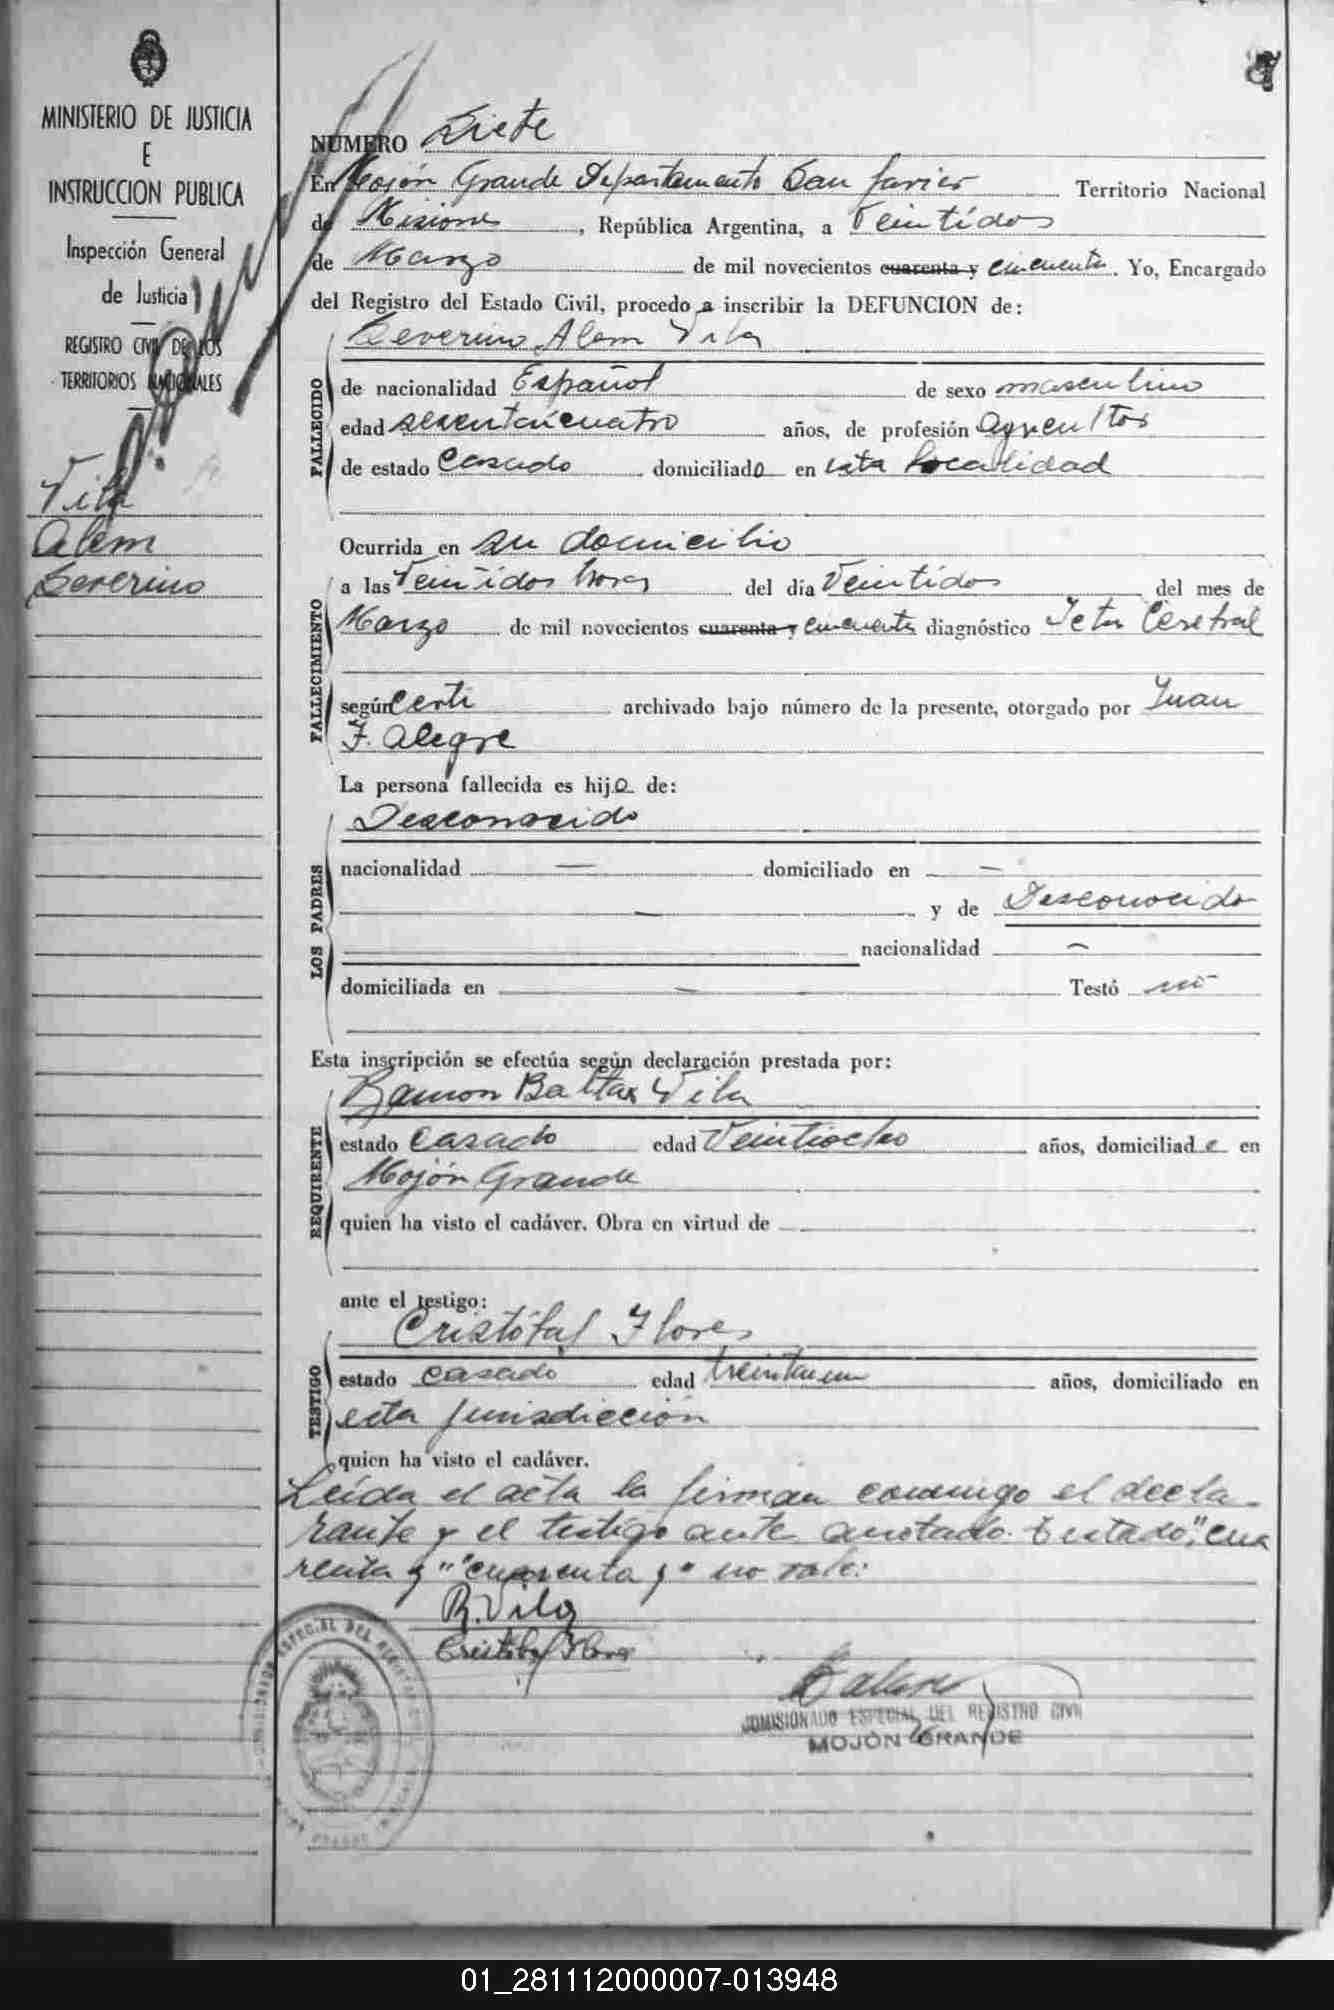 7
MINISTERIO DE JUSTICIA
E
INSTRUCCION PUBLICA
Inspección General
de Justicia
REGISTRO CIVIL DE LOS
TERRITORIOS NACIONALES
Vila
Alem
Severino
NUMERO Siete
En Mojón Grande Departamento San Javier Territorio Nacional
de Misiones, República Argentina, a Veintidos
de Marzo de mil novecientos cuarenta y cincuenta. Yo, Encargado
del Registro del Estado Civil, procedo a inscribir la DEFUNCION de:
Severino Alem Vila
FALLECIDO
de nacionalidad Español de sexo masculino
edad sesentaicuatro años, de profesión Agricultor
de estado Casado domiciliado en esta Localidad
Ocurrida en su domicilio
FALLECIMIENTO
a las Veintidos horas del día Veintidos del mes de
Marzo de mil novecientos cuarenta y cincuenta diagnóstico Cerebral
según Certi archivado bajo número de la presente, otorgado por Juan
F. Alegre
La persona fallecida es hijo de:
LOS PADRES
Desconocido
nacionalidad — domiciliado en —
— y de Desconocido
nacionalidad —
domiciliada en — Testó no
Esta inscripción se efectúa según declaración prestada por:
REQUIRENTE
Ramon Baltar Vila
estado Casado edad Veintiocho años, domiciliado en
Mojón Grande
quien ha visto el cadáver. Obra en virtud de
ante el testigo:
TESTIGO
Cristóbal Flores
estado casado edad treintaiun años, domiciliado en
esta jurisdicción
quien ha visto el cadáver.
Leída el acta la firman conmigo el decla-
rante y el testigo ante anotado. Testado: "cua
renta y" "cuarenta y" no vale:
R. Vila
Cristobal Flores
COMISIONADO ESPECIAL DEL REGISTRO CIVIL
MOJÓN GRANDE
01_281112000007-013948